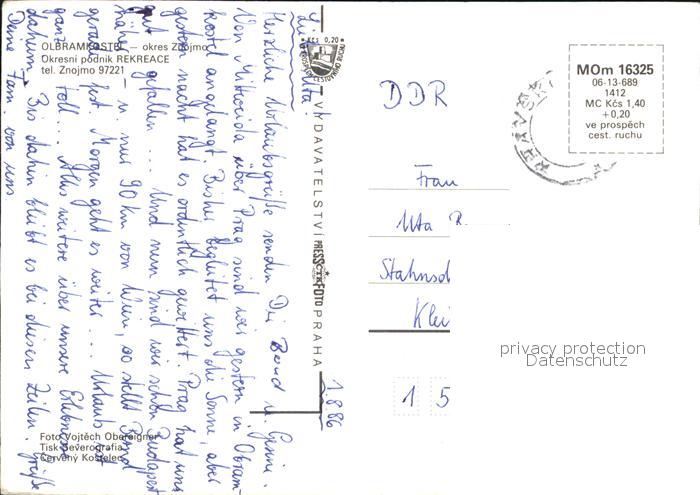 OLBRAMKOSTEL — okres Znojmo
Okresní podnik REKREACE
tel. Znojmo 97221
Kčs 0,20
VYDAVATELSTVÍ PRESSFOTO PRAHA
MOm 16325
06-13-689
1412
MC Kčs 1,40
+0,20
ve prospěch
cest. ruchu
DDR
Frau
Uta R.
Stahnsd
Klei
1 5
privacy protection
Datenschutz
1.8.86
Liebe Uta!
Herzliche Urlaubsgrüße senden Dir Bernd u. Ginni.
Von über Prag sind wir gestern in Olbram-
kostel angelangt. Bisher begleitet uns die Sonne, aber
gestern nacht hat es ordentlich gewittert. Prag hat uns
gut gefallen... Und nun sind wir schon Budapest
näher – u. nur 90 km von Wien, so stellt Bernd
gerade fest. Morgen geht es weiter... Urlaub ist
ganz toll... Alles weitere über unsere Erlebnisse
daheim. Bis dahin bleibt es bei diesen Zeilen. Grüße
Deine Fam. von uns
Foto Vojtěch Obereigner
Tisk Severografia
Červený Kostelec